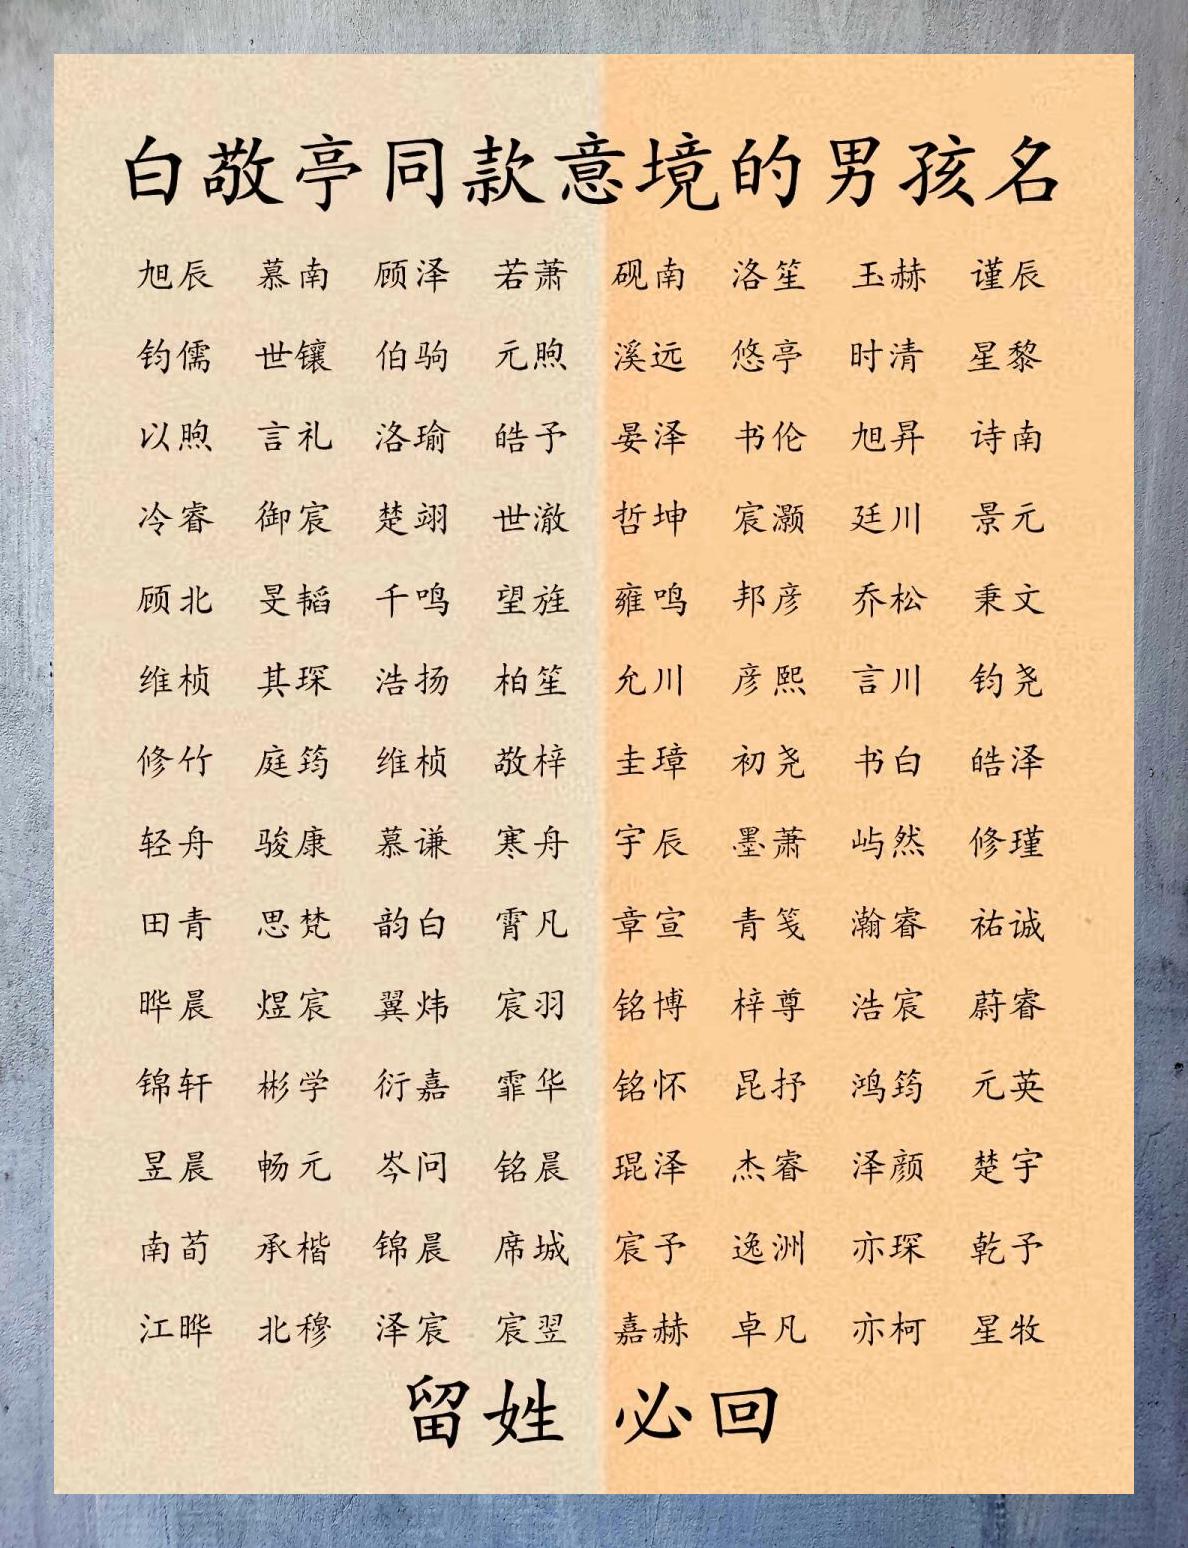 白敬亭同款意境的男孩名
旭辰 慕南 顾泽 若萧 砚南 洛笙 玉赫 谨辰
钧儒 世镶 伯驹 元煦 溪远 悠亭 时清 星黎
以煦 言礼 洛瑜 皓予 晏泽 书伦 旭昇 诗南
冷睿 御宸 楚翊 世澈 哲坤 宸灏 廷川 景元
顾北 旻韬 千鸣 望旌 雍鸣 邦彦 乔松 秉文
维桢 其琛 浩扬 柏笙 允川 彦熙 言川 钧尧
修竹 庭筠 维桢 敬梓 圭璋 初尧 书白 皓泽
轻舟 骏康 慕谦 寒舟 宇辰 墨萧 屿然 修瑾
田青 思梵 韵白 霄凡 章宣 青笺 瀚睿 祐诚
晔晨 煜宸 翼炜 宸羽 铭博 梓尊 浩宸 蔚睿
锦轩 彬学 衍嘉 霏华 铭怀 昆抒 鸿筠 元英
昱晨 畅元 岑问 铭晨 琨泽 杰睿 泽颜 楚宇
南荀 承楷 锦晨 席城 宸予 逸洲 亦琛 乾予
江晔 北穆 泽宸 宸翌 嘉赫 卓凡 亦柯 星牧
留姓 必回